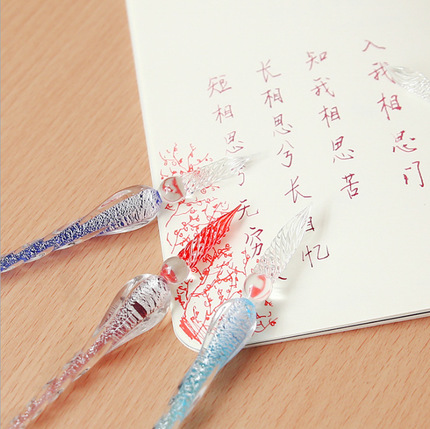 入我相思门
知我相思苦
长相思兮长相忆
短相思兮无穷